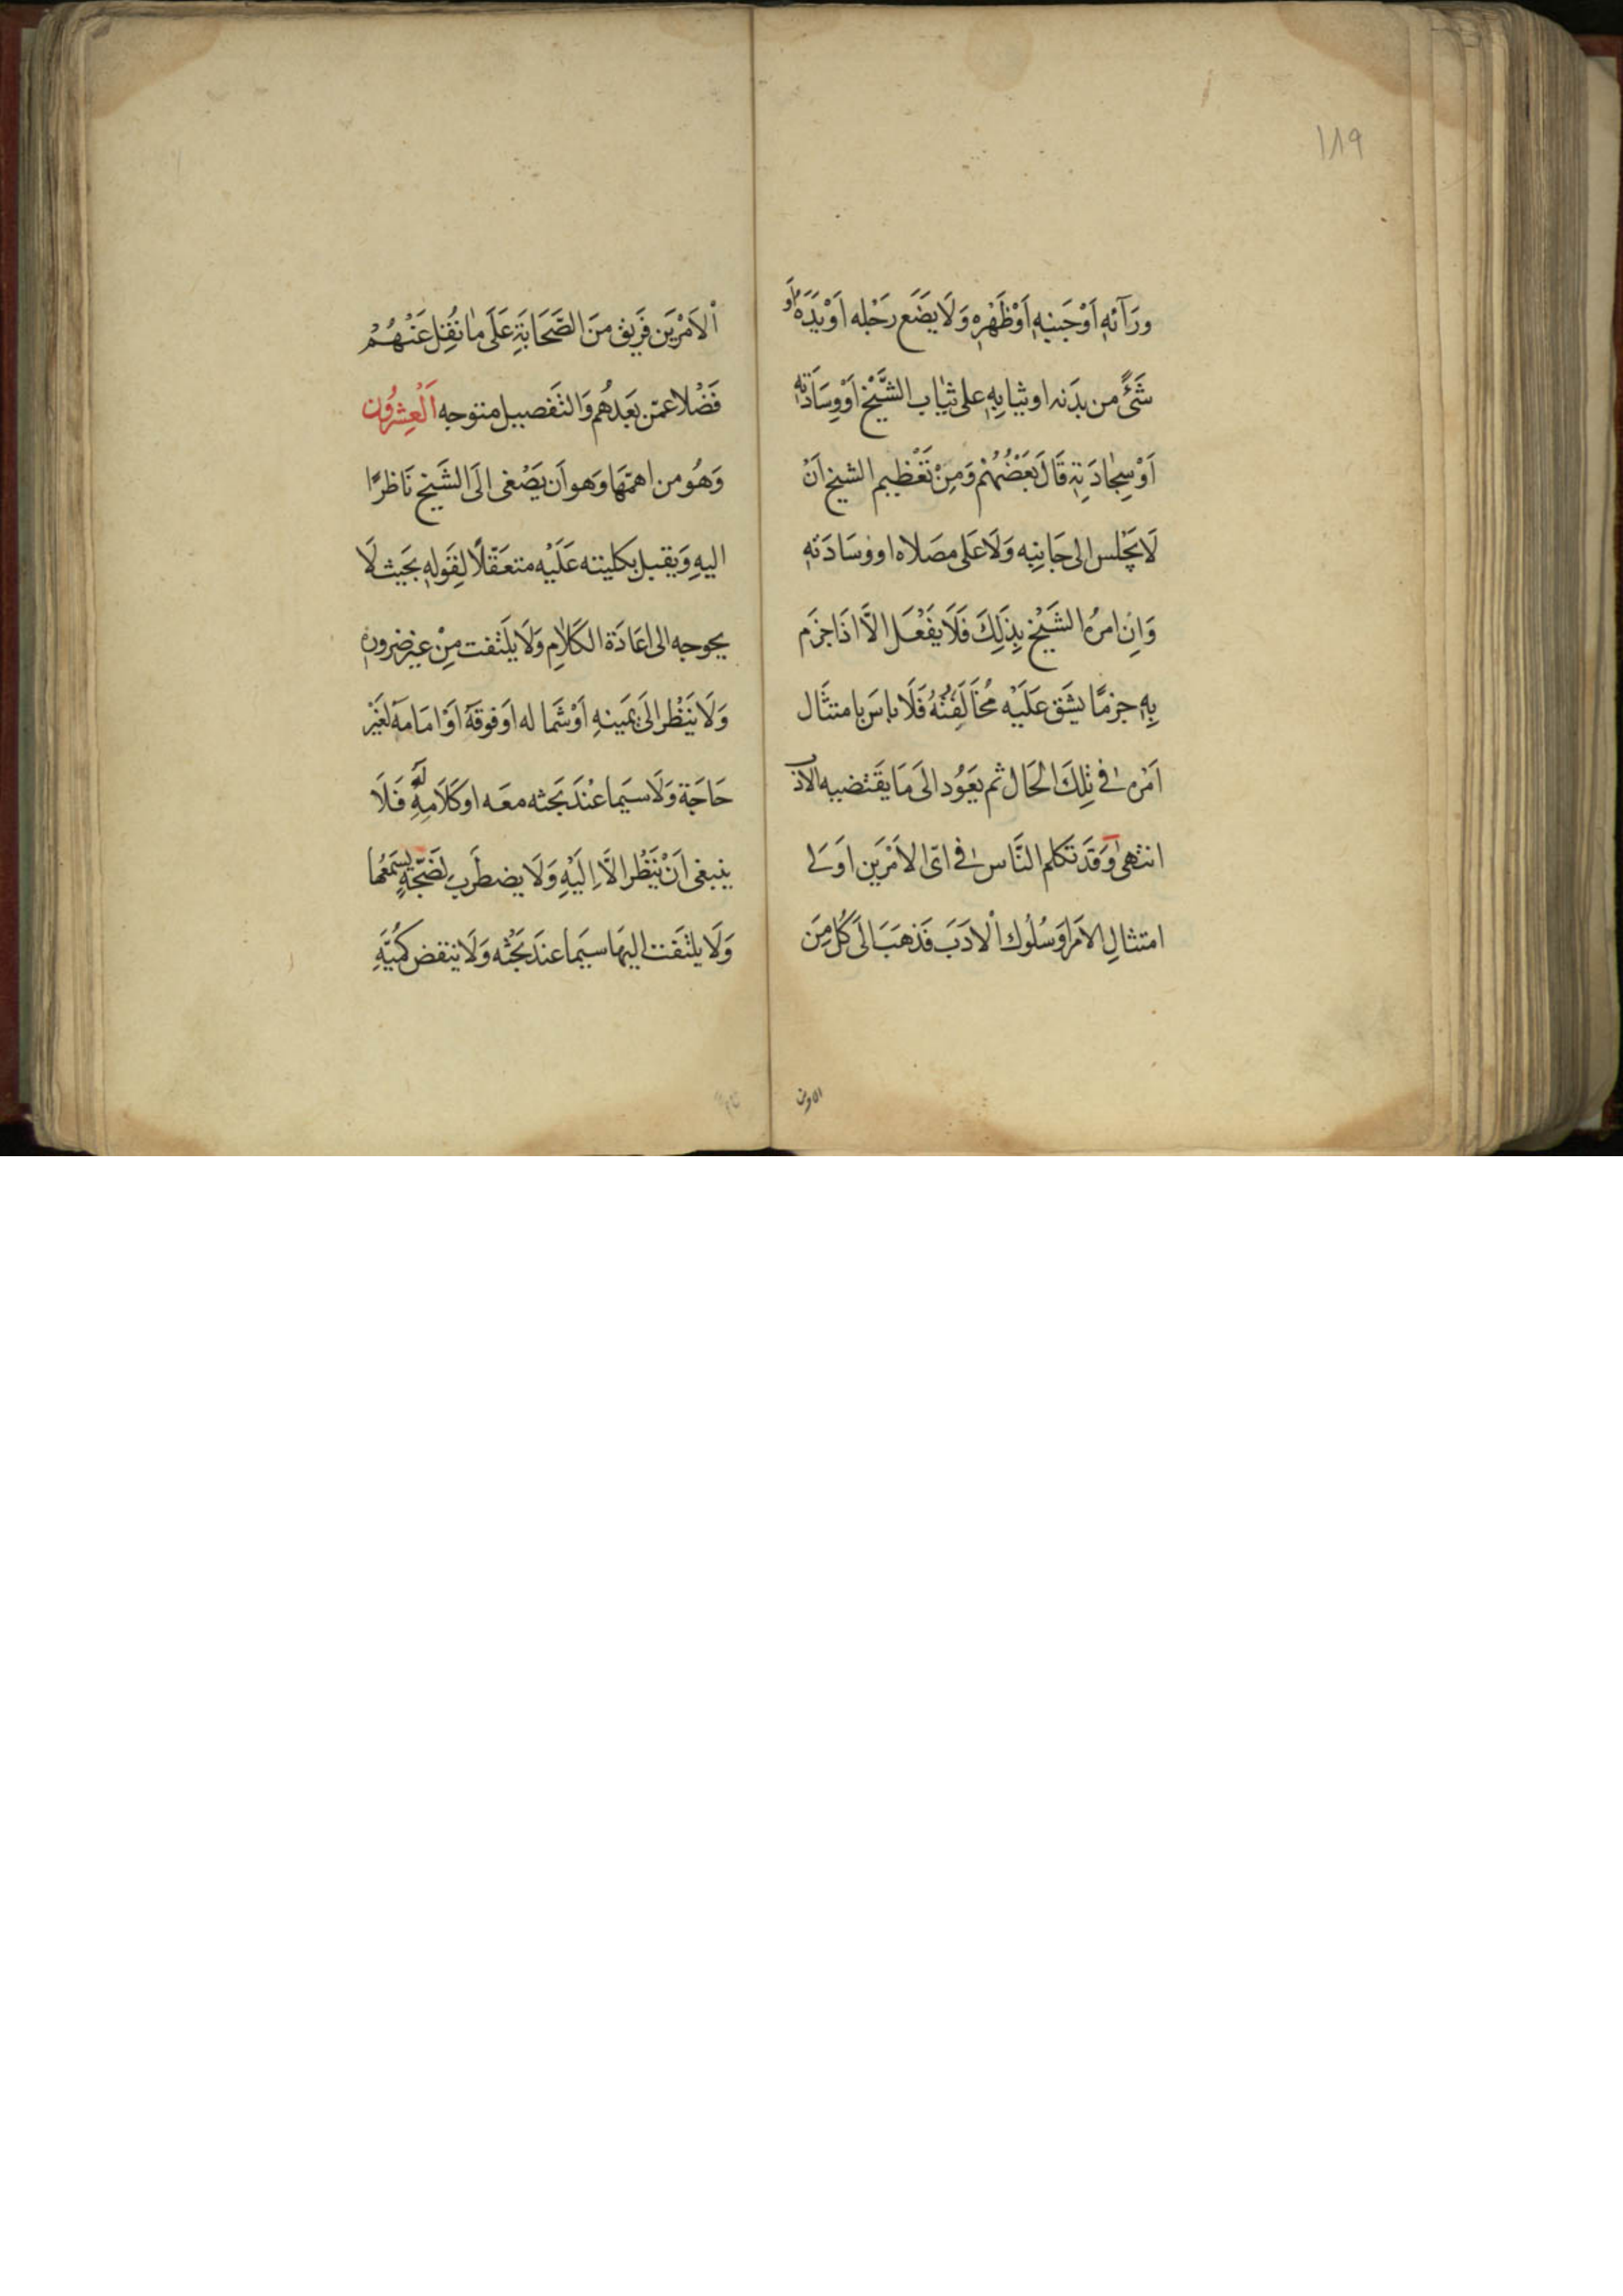 ١٨٩
ورَآئهِ اَوْجَنبهِ اَوْظَهْرِهِ وَلَا يَضَع رَحْله اَوْ يَدَهُ اَو
شَئً من بدَنه اوثيابِهِ على ثيَاب الشَّيْخ اَوْوِسَادَتهِ
اَوْسِجادَتِهِ قَالَ بَعْضُهُمْ وَمِنْ تَعْظِيم الشيخ اَنْ
لَا يَجْلس الى جَانِبِه وَلَا عَلى مصَلاه اووسَادَتهِ
وَاِن امرُه الشَيْخ بِذَلِكَ فَلَا يَفْعَل الاَّ اذَا جزَم
بِهِ جزمًا يشَق عَلَيْه مُخَالَفَتُهُ فَلَا باسَ بامتثَال
اَمْرِه فِى تِلِكَ الْحَال ثم يَعَوُد الى مَا يَقَتْضيه الاَدب
انتهىٰ وَقَدَ تَكلم النَّاس فِى اىّ الامْرَيَن اوَلى
امتثالِ الامَر اوَسُلُوك الْادَبَ فَذهَبَ الىَ كُلٍ مِنَ
الاوين
اْلاَمْرَيَن فَرِيق مِنَ الصَّحَابَةِ عَلَى مٰا نُقِل عَنْهُمْ
فَضْلا عمّن بَعَدهُم وَالتَفصيل متوجه اَلْعِشْرُون
وَهُوُ من اهمّهَا وَهو اَن يَصْغى الىَ الشَيخ نَاظرًا
اليهِ وَيقبل بكليته عَلَيْه متعَقّلًا لِقَولهِ بحَيث لَا
يحوجه الى اعَادَة الكَلٰامِ وَلَا يلَتفت مِنْ غيرضرورةٍ
وَلَا يَنظُر الىٰ يمَينهِ اَوْشَماله اَوفوقهَ اَوْامَامَهَ لغَيْر
حَاجَة وَلَا سيَما عنْدَ بحَثه معَه اوكَلَامِهِ لَهُ فَلَا
ينبغى اَنْ يَنظُر الاَّ اِلَيْهِ وَلَا يضطَرب لضَجّةٍ يسَمَعُها
وَلَا يلتَفت اليهَا سيَما عندَ بَحْثه وَلَا ينفض كمُيَّهِ